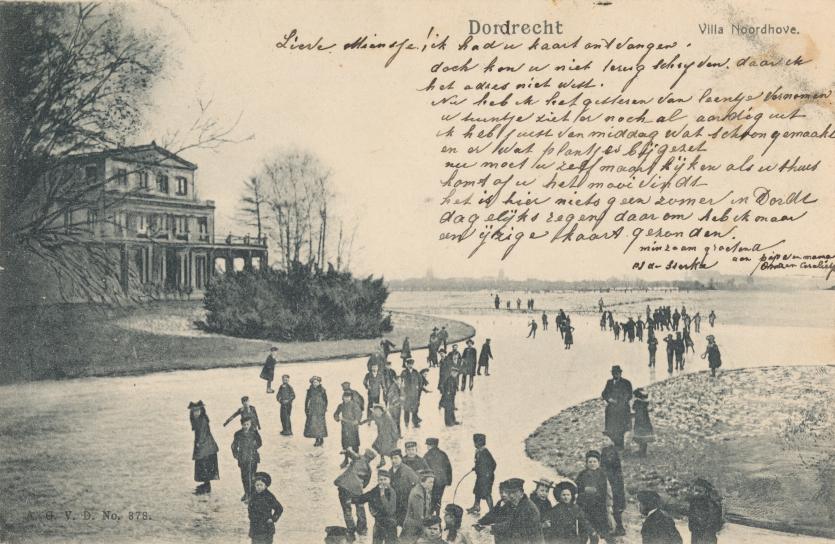 Dordrecht
Villa Noordhove.
Lieve Miensje! ik had u kaart ontvangen.
doch kon u niet terug schrijven, daar ik
het adres niet wist.
Nu heb ik het gisteren van Leentje vernomen
u tuintje ziet er noch al aardig uit
ik heb juist van middag wat schoongemaakt
en er wat plantjes bijgezet
nu moet u zelf maar kijken als u thuis
komt of u het mooi vindt
het is hier niets geen zomer in Dordt
dagelijks regen, daarom heb ik maar
een ijzige kaart gezonden.
minzaam groetend
aan
A. G. V. D. No. 378.